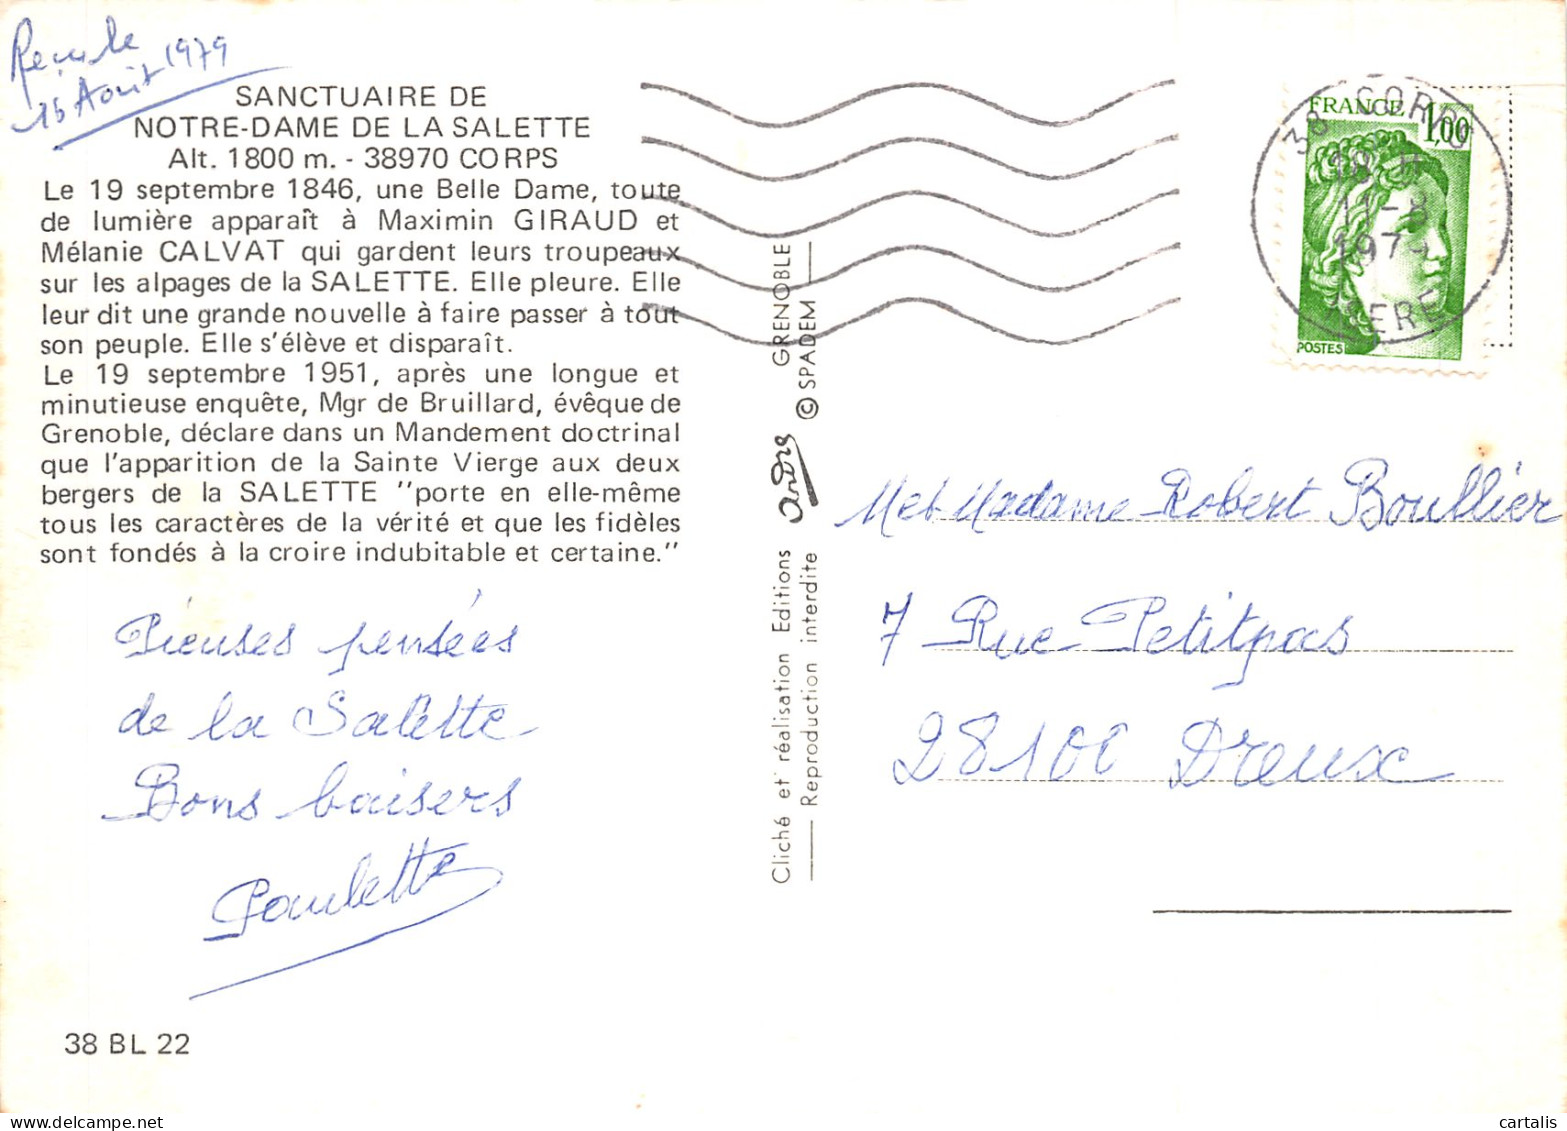 Reçu le
16 Août 1979
SANCTUAIRE DE
NOTRE-DAME DE LA SALETTE
Alt. 1800 m. - 38970 CORPS
Le 19 septembre 1846, une Belle Dame, toute
de lumière apparaît à Maximin GIRAUD et
Mélanie CALVAT qui gardent leurs troupeaux
sur les alpages de la SALETTE. Elle pleure. Elle
leur dit une grande nouvelle à faire passer à tout
son peuple. Elle s'élève et disparaît.
Le 19 septembre 1951, après une longue et
minutieuse enquête, Mgr de Bruillard, évêque de
Grenoble, déclare dans un Mandement doctrinal
que l'apparition de la Sainte Vierge aux deux
bergers de la SALETTE "porte en elle-même
tous les caractères de la vérité et que les fidèles
sont fondés à la croire indubitable et certaine."
Pieuses pensées
de la Salette
Bons baisers
Paulette
38 BL 22
Cliché et réalisation Editions André GRENOBLE
Reproduction interdite © SPADEM
FRANCE 1,00
POSTES
38 CORPS
18 H
11-8
1979
ISERE
M et Madame Robert Boullier
7 Rue Petitpas
28100 Dreux
cartalis